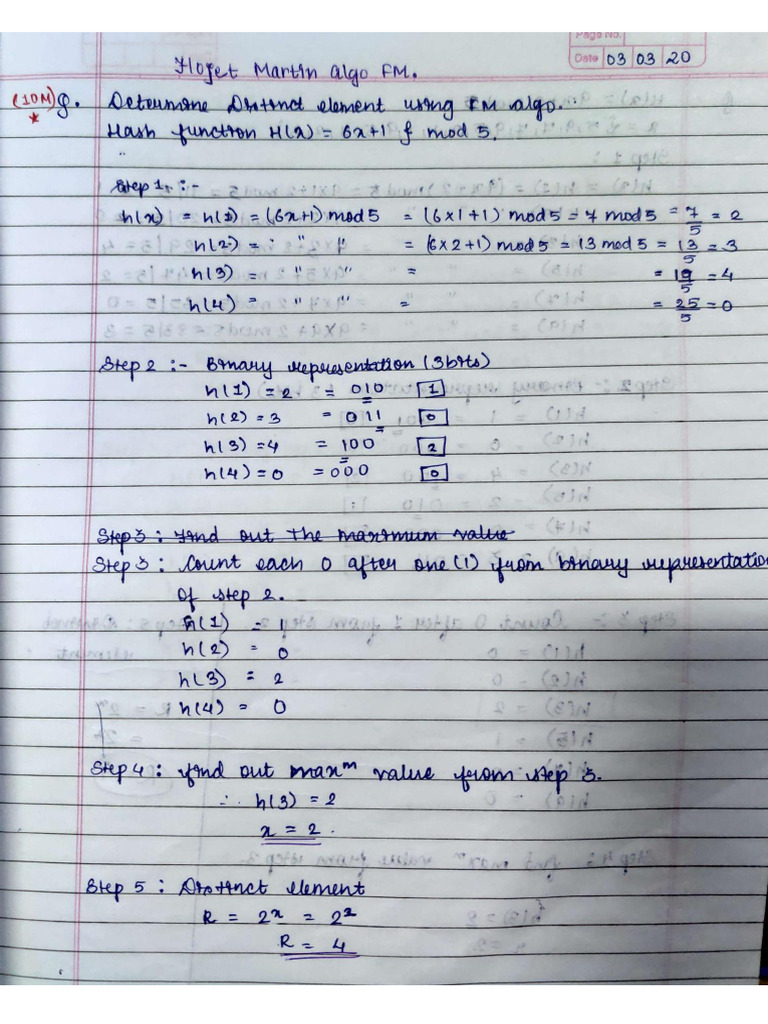 Page No.
Date 03 03 20
Flojet Martin algo FM.
(10M) Q. Determine Distinct element using FM algo.
* Hash function H(x) = 6x+1 & mod 5.
Step 1 :-
h(x) = h(1) = (6x+1) mod 5 = (6x1+1) mod 5 = 7 mod 5 = 7/5 = 2
h(2) = : " " = (6x2+1) mod 5 = 13 mod 5 = 13/5 = 3
h(3) = " " = = 19/5 = 4
h(4) = " " = = 25/5 = 0
Step 2 :- Binary representation (3bits)
h(1) = 2 = 010 1
h(2) = 3 = 011 0
h(3) = 4 = 100 2
h(4) = 0 = 000 0
Step 3 : Find out the maximum value
Step 3 : Count each 0 after one (1) from binary representation
of step 2.
h(1) = 1
h(2) = 0
h(3) = 2
h(4) = 0
Step 4 : find out maxᵐ value from step 3.
∴ h(3) = 2
x = 2.
Step 5 : Distinct element
R = 2ˣ = 2²
R = 4